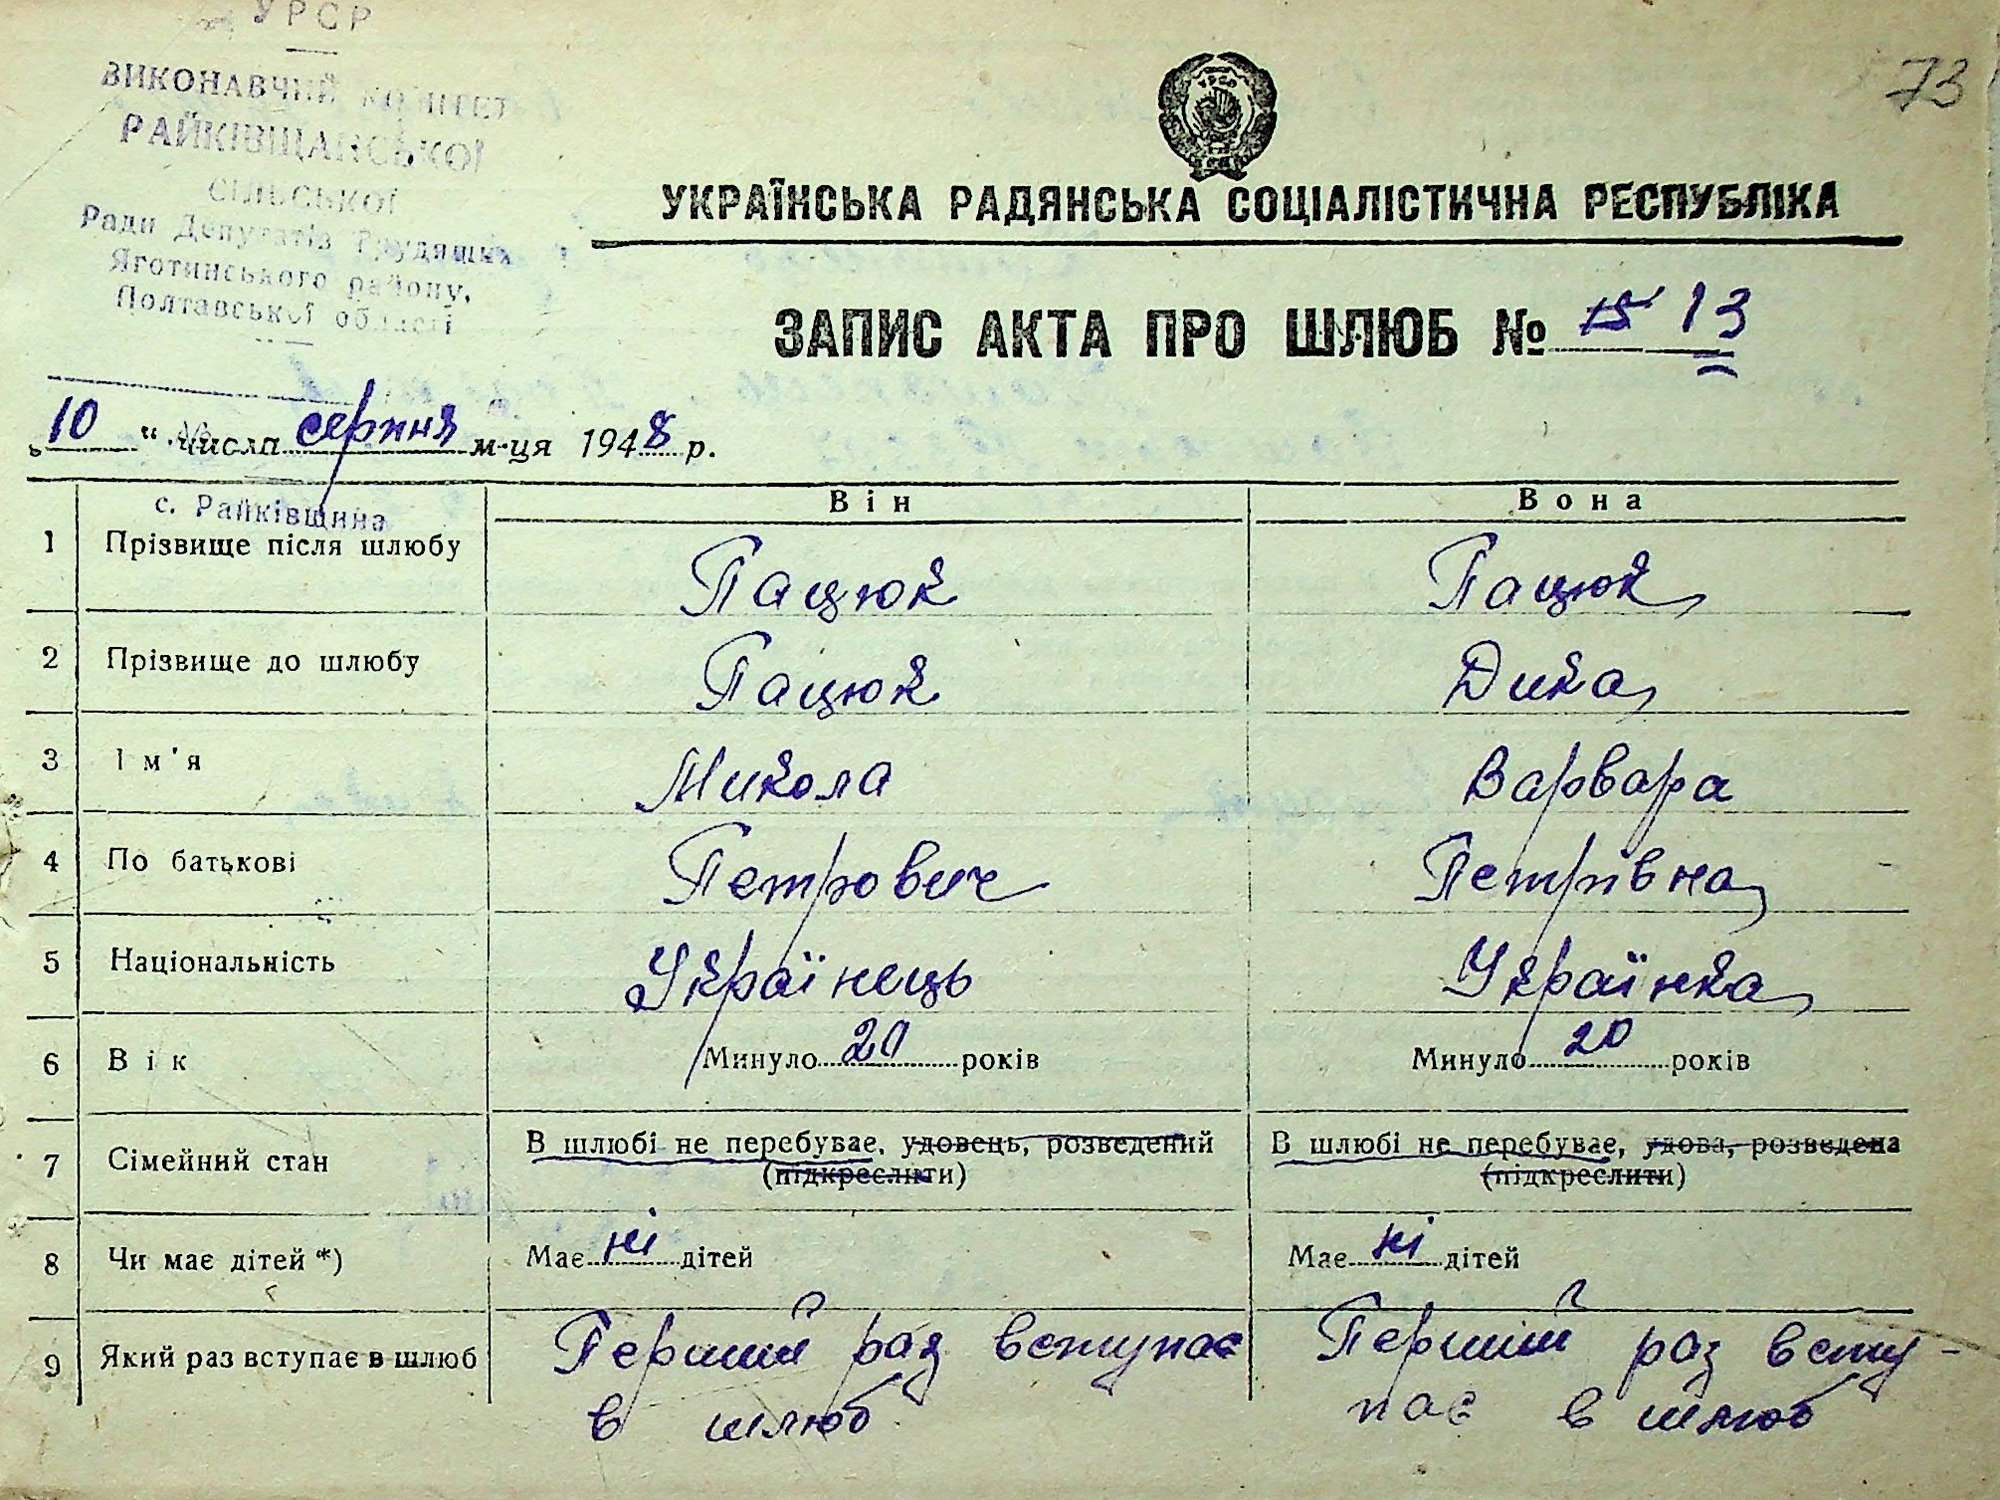 УРСР
ВИКОНАВЧИЙ КОМІТЕТ
РАЙКІВЩАНСЬКОЇ
СІЛЬСЬКОЇ
Ради Депутатів Трудящих
Яготинського району,
Полтавської області
73
УКРАЇНСЬКА РАДЯНСЬКА СОЦІАЛІСТИЧНА РЕСПУБЛІКА
ЗАПИС АКТА ПРО ШЛЮБ № 15 13
„10“ числа серпня м-ця 1948 р.
с. Райківщина
Він Вона
1 Прізвище після шлюбу Пацюк Пацюк
2 Прізвище до шлюбу Пацюк Дика
3 Ім'я Микола Варвара
4 По батькові Петрович Петрівна
5 Національність Українець Українка
6 Вік Минуло 20 років Минуло 20 років
7 Сімейний стан В шлюбі не перебуває, удовець, розведений В шлюбі не перебуває, удова, розведена
(підкреслити) (підкреслити)
8 Чи має дітей *) Має ні дітей Має ні дітей
9 Який раз вступає в шлюб Перший раз вступає Перший раз всту-
в шлюб пає в шлюб